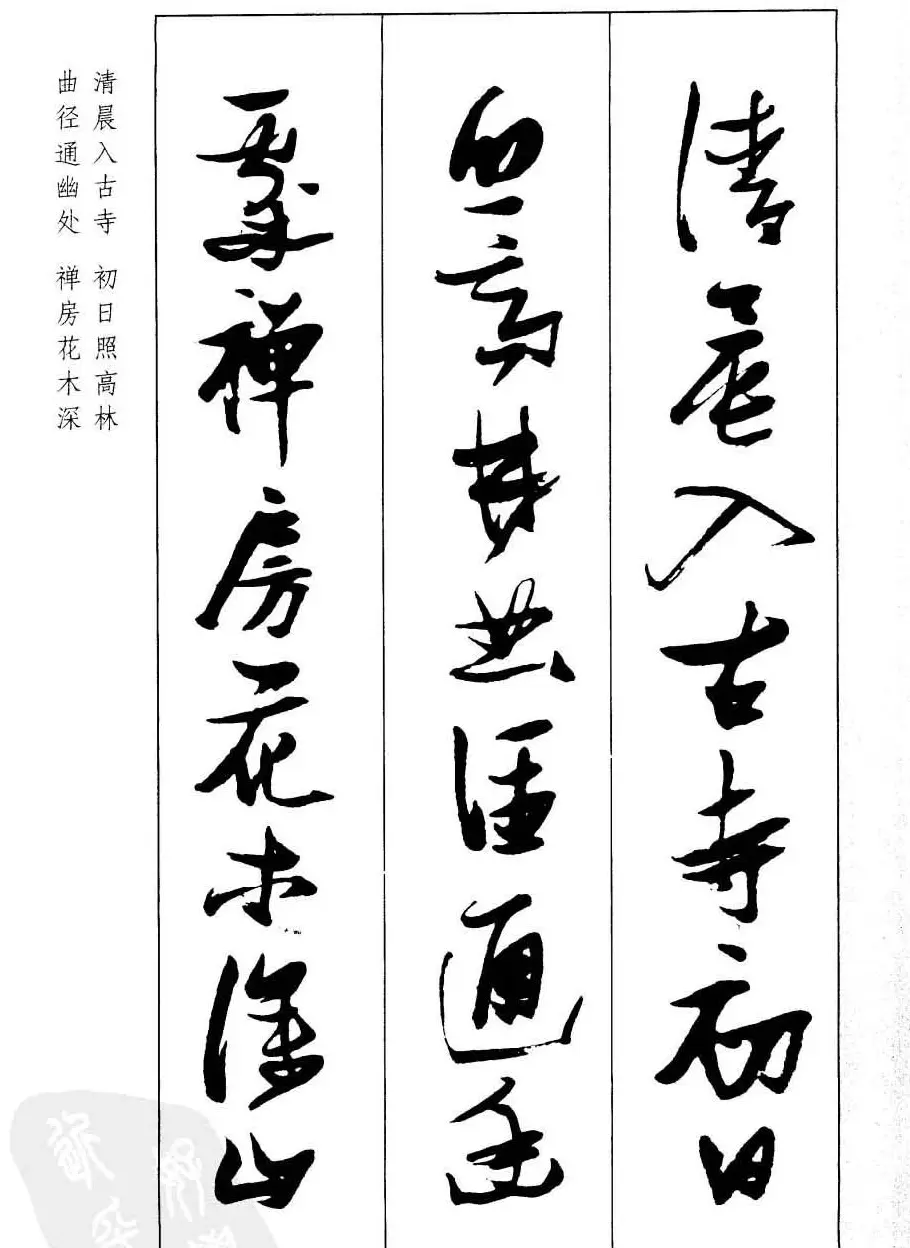 清晨入古寺初日
照高林曲徑通幽
處禪房花木深山
清晨入古寺 初日照高林
曲径通幽处 禅房花木深